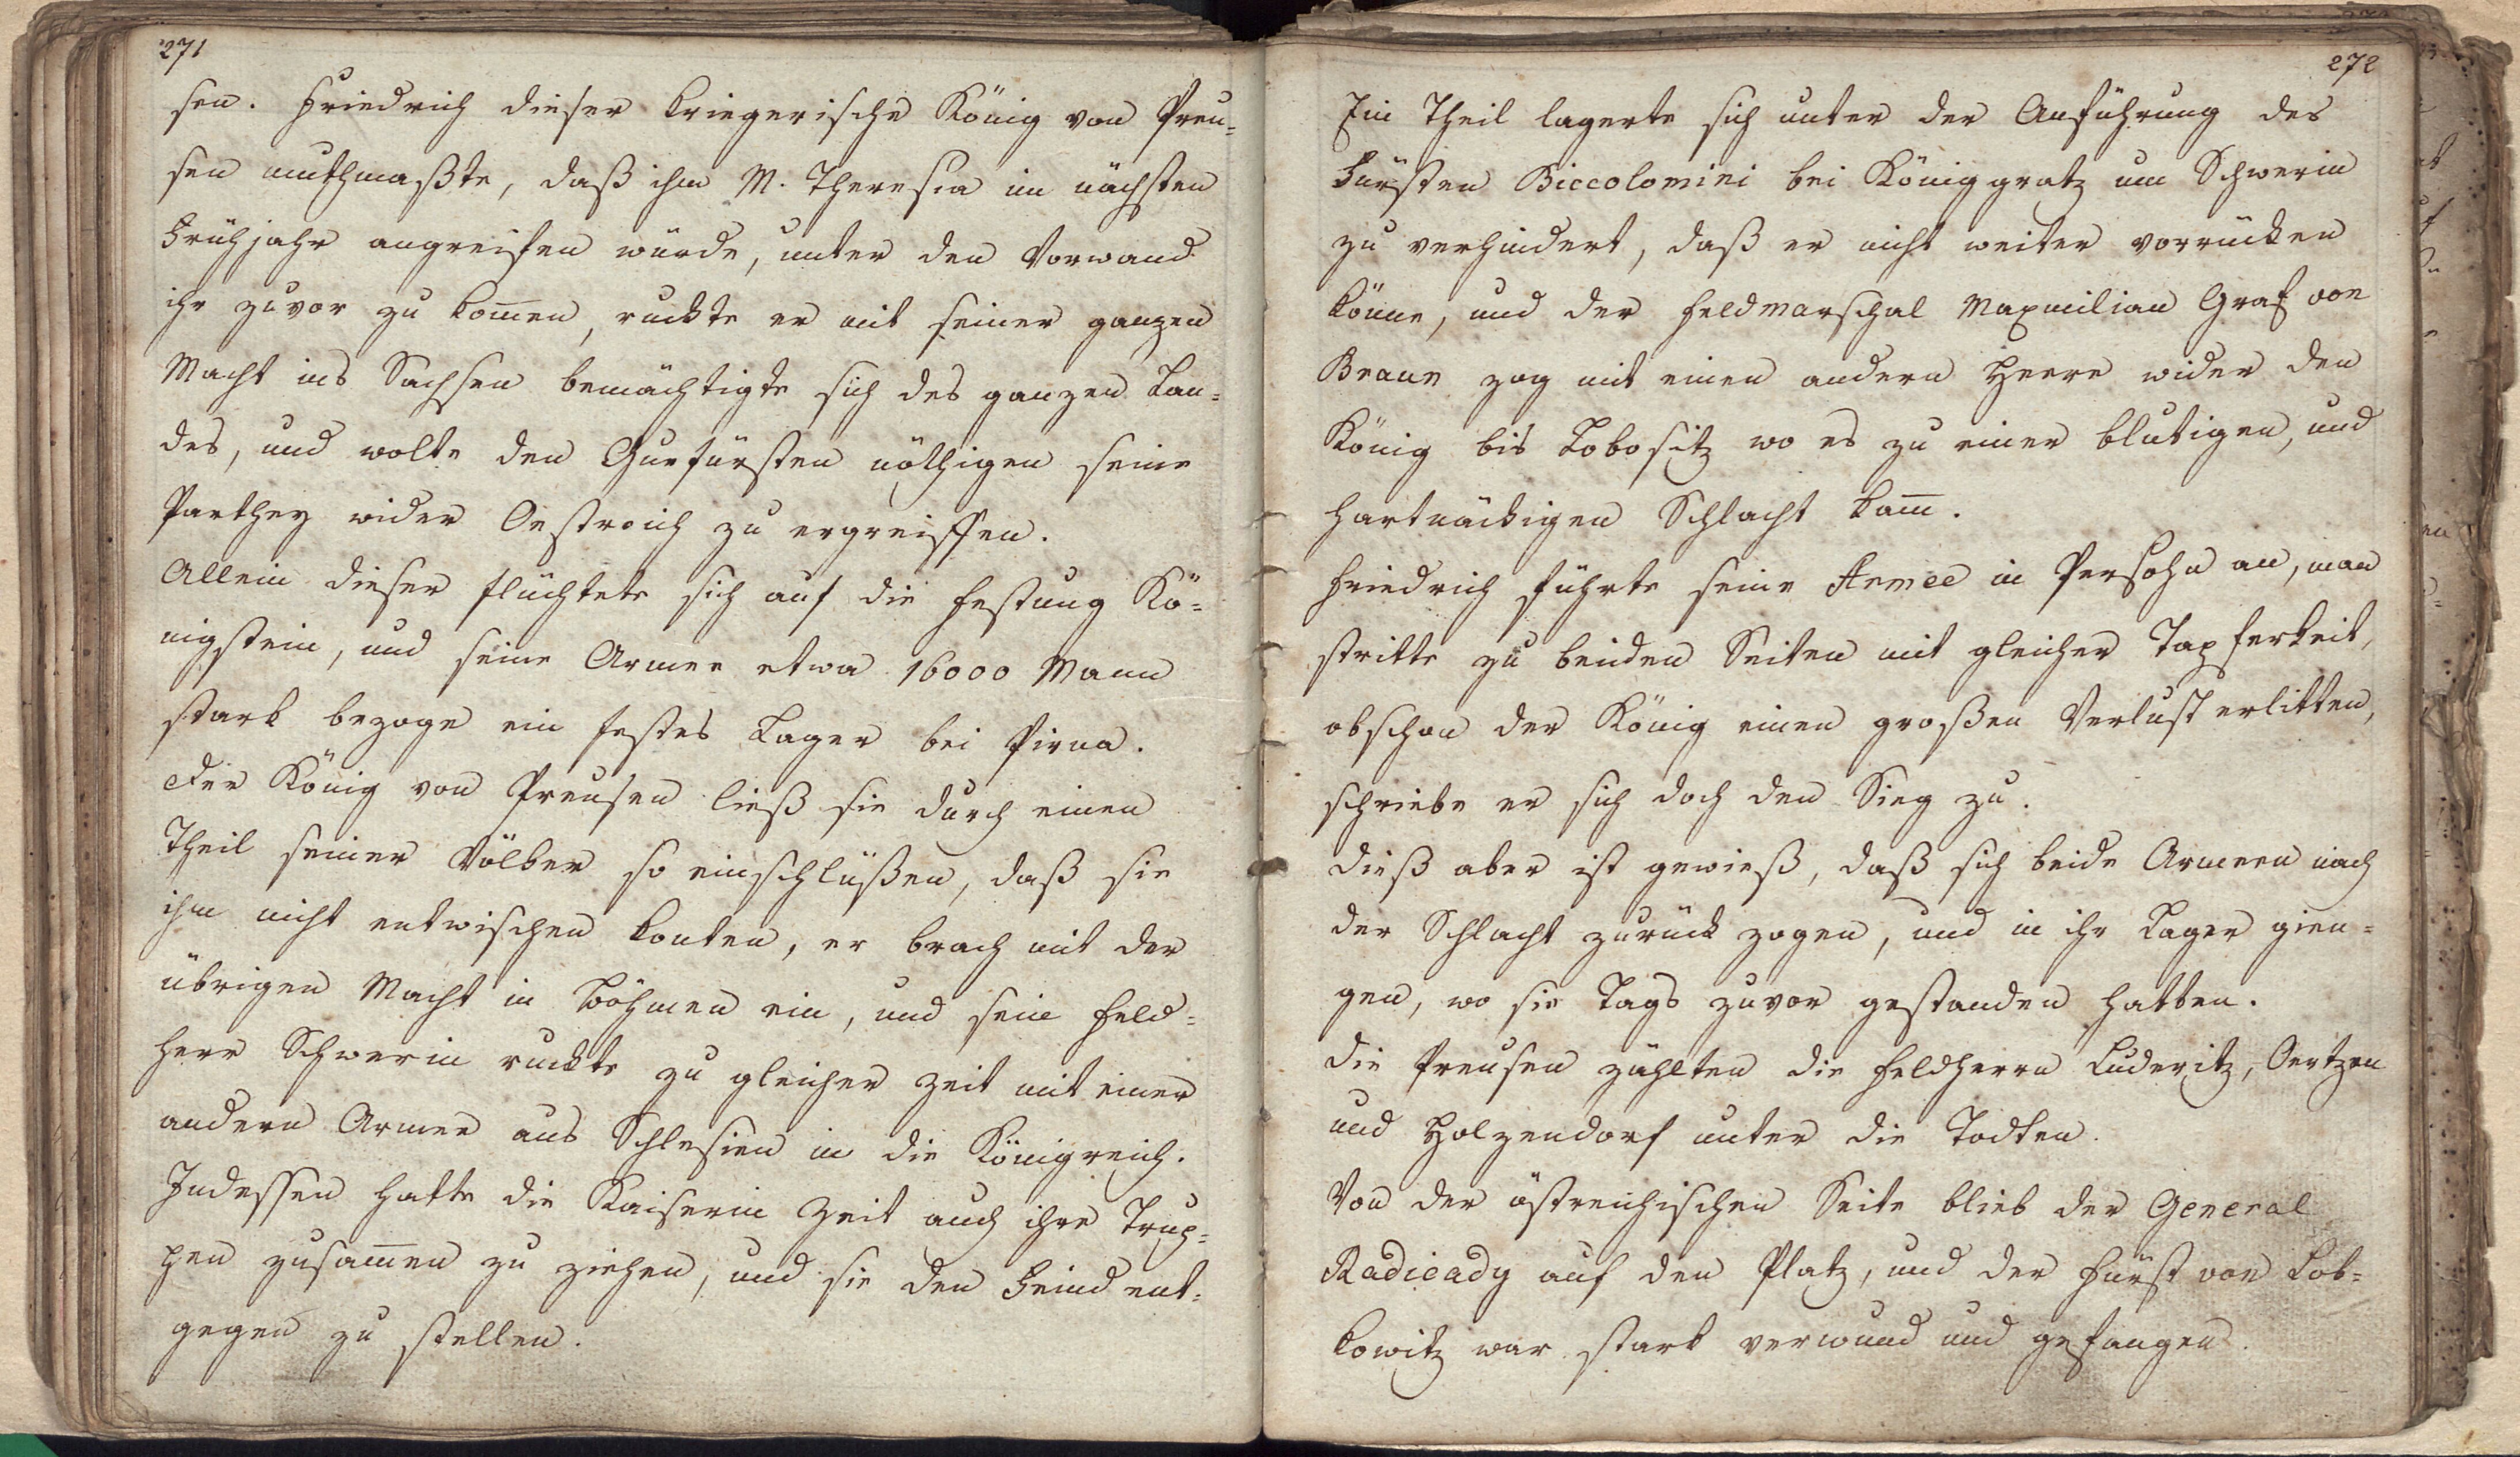 271
sen. Friedrich dieser kriegerische König von Preu-
sen muthmaßte, daß ihm M. Theresia im nächsten
Frühjahr angreifen würde, unter den Vorwand
ihr zuvor zu kom̄en, ruckte er mit seiner ganzen
Macht ins Sachsen bemächtigte sich des ganzen Lan-
des, und wolte den Churfürsten nöthigen seine
Parthey wider Oestreich zu ergreiffen.
Allein dieser flüchtete sich auf die Festung Kö-
nigstein, und seine Armee etwa 16000 Mann
stark bezoge ein festes Lager bei Pirna.
Der König von Preusen ließ sie durch einen
Theil seiner Völker so einschlüßen, daß sie
ihm nicht entwischen konten, er brach mit der
übrigen Macht in Böhmen ein, und sein Feld-
herr Schwerin ruckte zu gleicher Zeit mit einer
andern Armee aus Schlesien in die Königreich.
Indessen hatte die Kaiserin Zeit auch ihre Trup-
pen zusam̄en zu ziehen, und sie den Feind ent-
gegen zu stellen.
272
Ein Theil lagerte sich unter der Anführung des
Fürsten Biccolomini bei Königgratz um Schwerin
zu verhindert, daß er nicht weiter vorrücken
könne, und der Feldmarschal Maxmilian Graf von
Braun zog mit einen andern Heere wider den
König bis Lobositz wo es zu einer blutigen, und
hartnäckigen Schlacht kam̄.
Friedrich führte seine Armee in Persohn an, man
stritte zu beiden Seiten mit gleicher Tapferkeit,
obschon der König einen großen Verlust erlitten,
schriebe er sich doch den Sieg zu.
Dieß aber ist gewieß, daß sich beide Armeen nach
der Schlacht zurück zogen, und in ihr Lager gien-
gen, wo sie Tags zuvor gestanden hatten.
Die Preusen zählten die Feldherrn Luderitz, Oertzen
und Holzendorf unter die Todten.
Von der östreichischen Seite blieb der General
Radicady auf den Platz, und der Fürst von Lob-
kowitz war stark verwund und gefangen.